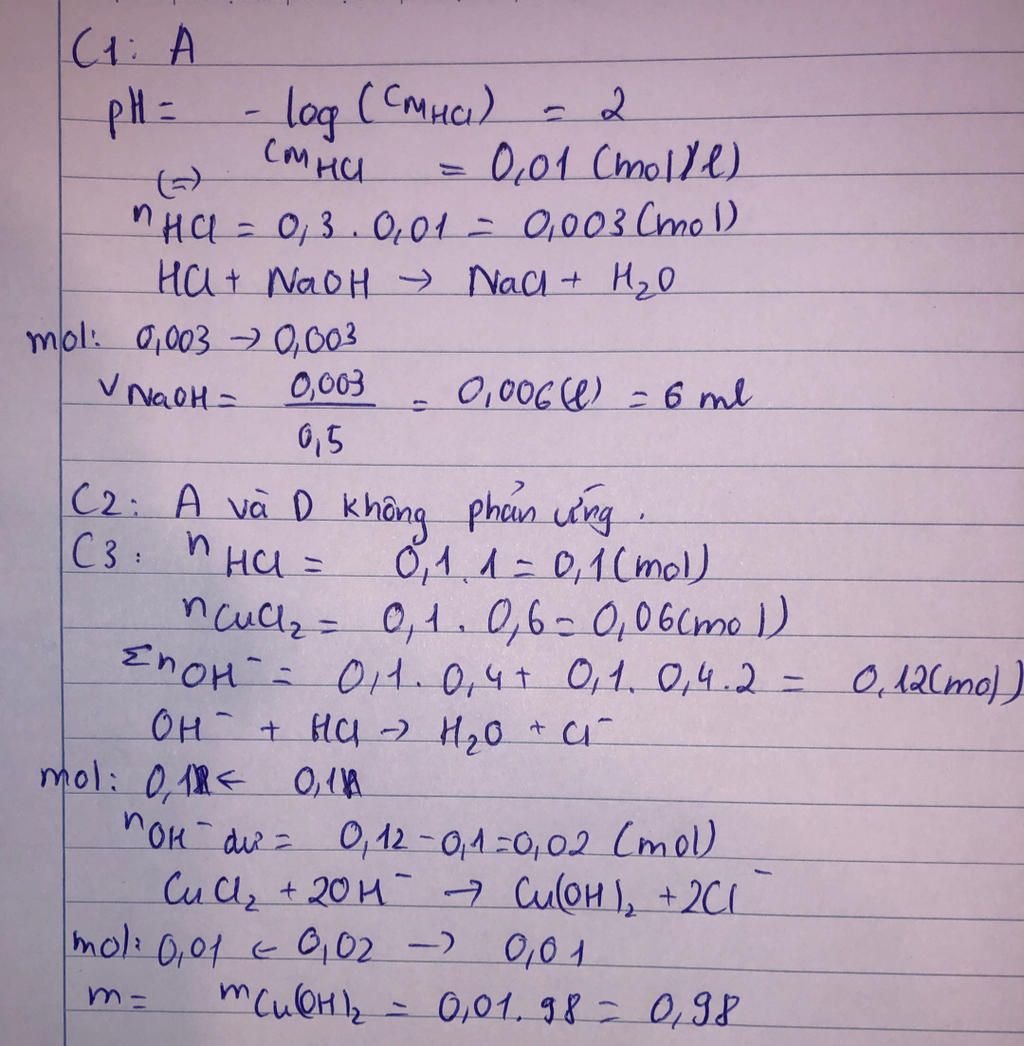 C1: A
pH = - log (CM HCl) = 2
(=) CM HCl = 0,01 (mol/l)
nHCl = 0,3 . 0,01 = 0,003 (mol)
HCl + NaOH → NaCl + H₂O
mol: 0,003 → 0,003
V NaOH = 0,003 / 0,5 = 0,006 (l) = 6 ml
C2: A và D không phản ứng.
C3: nHCl = 0,1 . 1 = 0,1 (mol)
nCuCl₂ = 0,1 . 0,6 = 0,06 (mol)
ΣnOH⁻ = 0,1 . 0,4 + 0,1 . 0,4 . 2 = 0,12 (mol)
OH⁻ + HCl → H₂O + Cl⁻
mol: 0,1 ← 0,1
nOH⁻ dư = 0,12 - 0,1 = 0,02 (mol)
CuCl₂ + 2OH⁻ → Cu(OH)₂ + 2Cl⁻
mol: 0,01 ← 0,02 → 0,01
m = mCu(OH)₂ = 0,01 . 98 = 0,98